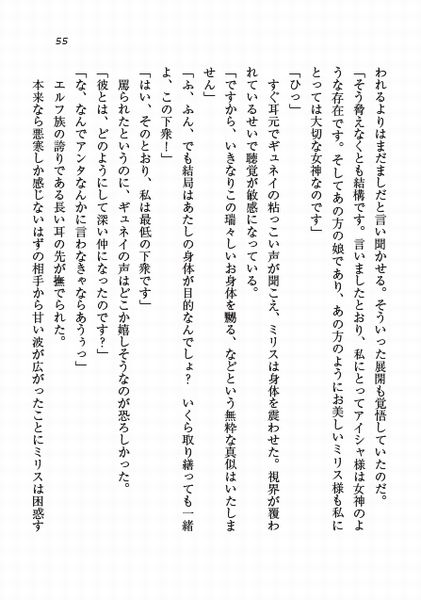 55
われるよりはまだましだと言い聞かせる。そういった展開も覚悟していたのだ。
「そう脅えなくとも結構です。言いましたとおり、私にとってアイシャ様は女神のよ
うな存在です。そしてあの方の娘であり、あの方のようにお美しいミリス様も私に
とっては大切な女神なのです」
「ひっ」
すぐ耳元でギュネイの粘っこい声が聞こえ、ミリスは身体を震わせた。視界が覆わ
れているせいで聴覚が敏感になっている。
「ですから、いきなりこの瑞々しいお身体を嬲る、などという無粋な真似はいたしま
せん」
「ふ、ふん、でも結局はあたしの身体が目的なんでしょ？　いくら取り繕っても一緒
よ、この下衆！」
「はい、そのとおり、私は最低の下衆です」
罵られたというのに、ギュネイの声はどこか嬉しそうなのが恐ろしかった。
「彼とは、どのようにして深い仲になったのです？」
「な、なんでアンタなんかに言わなきゃならあうぅっ」
エルフ族の誇りである長い耳の先が撫でられた。
本来なら悪寒しか感じないはずの相手から甘い波が広がったことにミリスは困惑す